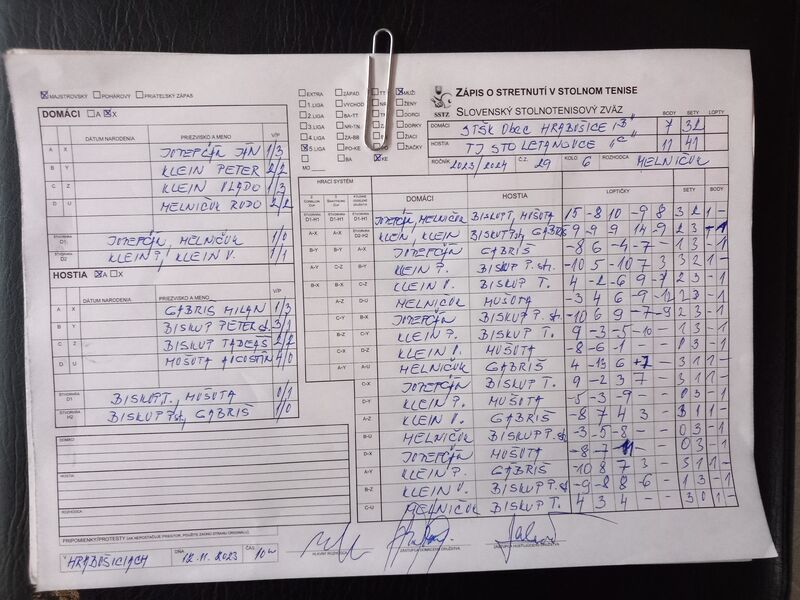 MAJSTROVSKÝ POHÁROVÝ PRIATEĽSKÝ ZÁPAS
DOMÁCI A X
DÁTUM NARODENIA PRIEZVISKO A MENO V/P
A X JOZEFČÁK JÁN 1/3
B Y KLEIN PETER 2/2
C Z KLEIN VLADO 1/3
D U MELNIČUK RUDO 2/2
ŠTVORHRA D1 JOZEFČÁK, MELNIČUK 1/0
ŠTVORHRA D2 KLEIN P., KLEIN V. 1/1
HOSTIA A X
DÁTUM NARODENIA PRIEZVISKO A MENO V/P
A X GABRIŠ MILAN 1/3
B Y BISKUP PETER st. 3/1
C Z BISKUP TADEÁŠ 2/2
D U MOŠOTA AUGUSTÍN 4/0
ŠTVORHRA D1 BISKUP T., MOŠOTA 0/1
ŠTVORHRA H2 BISKUP P. st., GABRIŠ 1/0
DOMÁCI
HOSTIA
ROZHODCA
PRIPOMIENKY/PROTESTY
V HRABUŠICIACH DŇA 12.11.2023 ČAS 10
HLAVNÝ ROZHODCA
EXTRA ZÁPAD MUŽI
1. LIGA VÝCHOD ŽENY
2. LIGA BA-TT DORCI
3. LIGA NR-TN DORKY
4. LIGA ZA-BB ŽIACI
5. LIGA PO-KE ŽIAČKY
BA KE
MO
SSTZ
ZÁPIS O STRETNUTÍ V STOLNOM TENISE
SLOVENSKÝ STOLNOTENISOVÝ ZVÄZ
BODY SETY LOPTY
DOMÁCI: STŠK OBEC HRABUŠICE "B" 7 32
HOSTIA: TJ STO LETANOVCE "C" 11 41
ROČNÍK 2023/2024 Č.Z. 29 KOLO 6 ROZHODCA MELNIČUK
HRACÍ SYSTÉM DOMÁCI HOSTIA LOPTIČKY SETY BODY
D1-H1 D1-H1 D1-H1 JOZEFČÁK, MELNIČUK BISKUP T., MOŠOTA 15 -8 10 -9 8 3 2 1 -
A-X A-X D2-H2 KLEIN, KLEIN BISKUP st., GABRIŠ -9 9 9 14 -9 2 3 - 1
B-Y B-Y A-X JOZEFČÁK GABRIŠ -8 6 -4 -7 - 1 3 - 1
A-Y C-Z B-Y KLEIN P. BISKUP P. st. -10 5 -10 7 3 3 2 1 -
B-X B-X C-Z KLEIN V. BISKUP T. 4 -2 -6 9 -7 2 3 - 1
A-Z D-U MELNIČUK MOŠOTA -3 4 6 -9 -12 2 3 - 1
C-Y B-X JOZEFČÁK BISKUP P. st. -10 6 9 -7 -9 2 3 - 1
B-Z C-Y KLEIN P. BISKUP T. 9 -3 -5 -10 - 1 3 - 1
C-X D-Z KLEIN V. MOŠOTA -8 -6 -1 - - 0 3 - 1
A-Y A-U MELNIČUK GABRIŠ 4 -13 6 7 - 3 1 1 -
C-X JOZEFČÁK BISKUP T. 9 -2 3 7 - 3 1 1 -
D-Y KLEIN P. MOŠOTA -5 -3 -9 - - 0 3 - 1
A-Z KLEIN V. GABRIŠ -8 7 4 3 - 3 1 1 -
B-U MELNIČUK BISKUP P. st. -3 -5 -8 - - 0 3 - 1
D-X JOZEFČÁK MOŠOTA -8 -7 -11 - - 0 3 - 1
A-Y KLEIN P. GABRIŠ -10 8 7 3 - 3 1 1 -
B-Z KLEIN V. BISKUP P. st. -9 -8 8 -6 - 1 3 - 1
C-U MELNIČUK BISKUP T. 4 3 4 - - 3 0 1 -
ZÁSTUPCA DOMÁCEHO DRUŽSTVA
ZÁSTUPCA HOSŤUJÚCEHO DRUŽSTVA